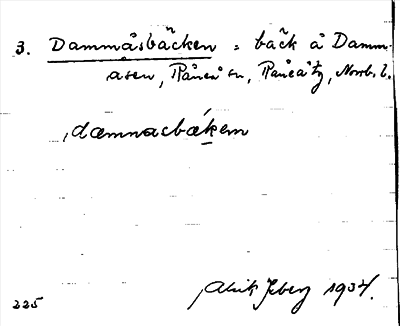 3. Dammåsbäcken = bäck å Damm-
åsen, Råneå sn, Råneå tg, Norrb. l.
,damnasbákem
Alvik Isberg 1934.
225